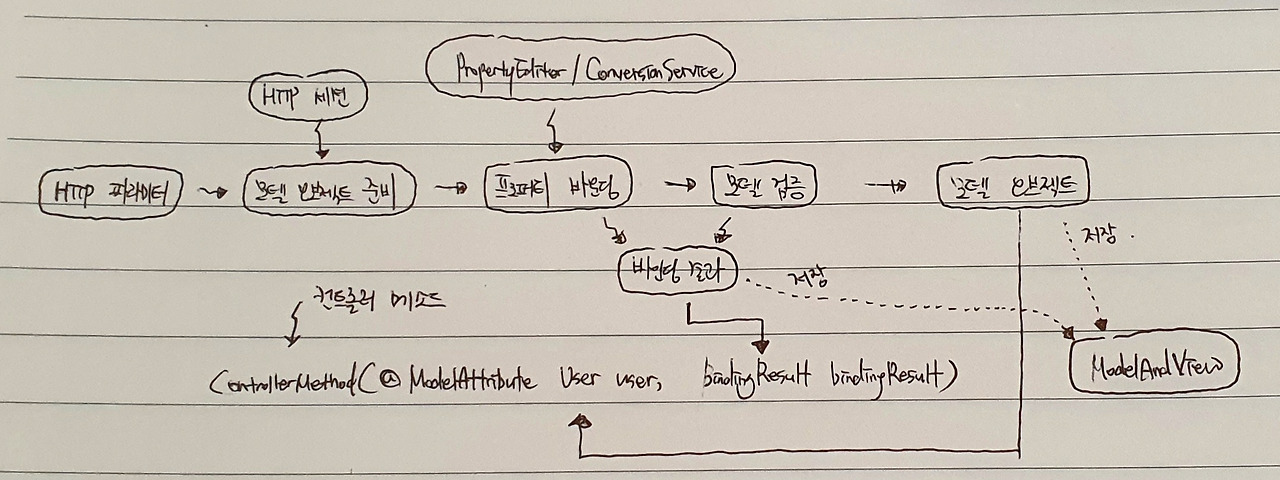 PropertyEditor / ConversionService
HTTP 세션
HTTP 파라미터
모델 오브젝트 준비
프로퍼티 바인딩
모델 검증
모델 오브젝트
저장
바인딩 결과
저장
컨트롤러 메소드
ControllerMethod(@ModelAttribute User user, bindingResult bindingResult)
ModelAndView